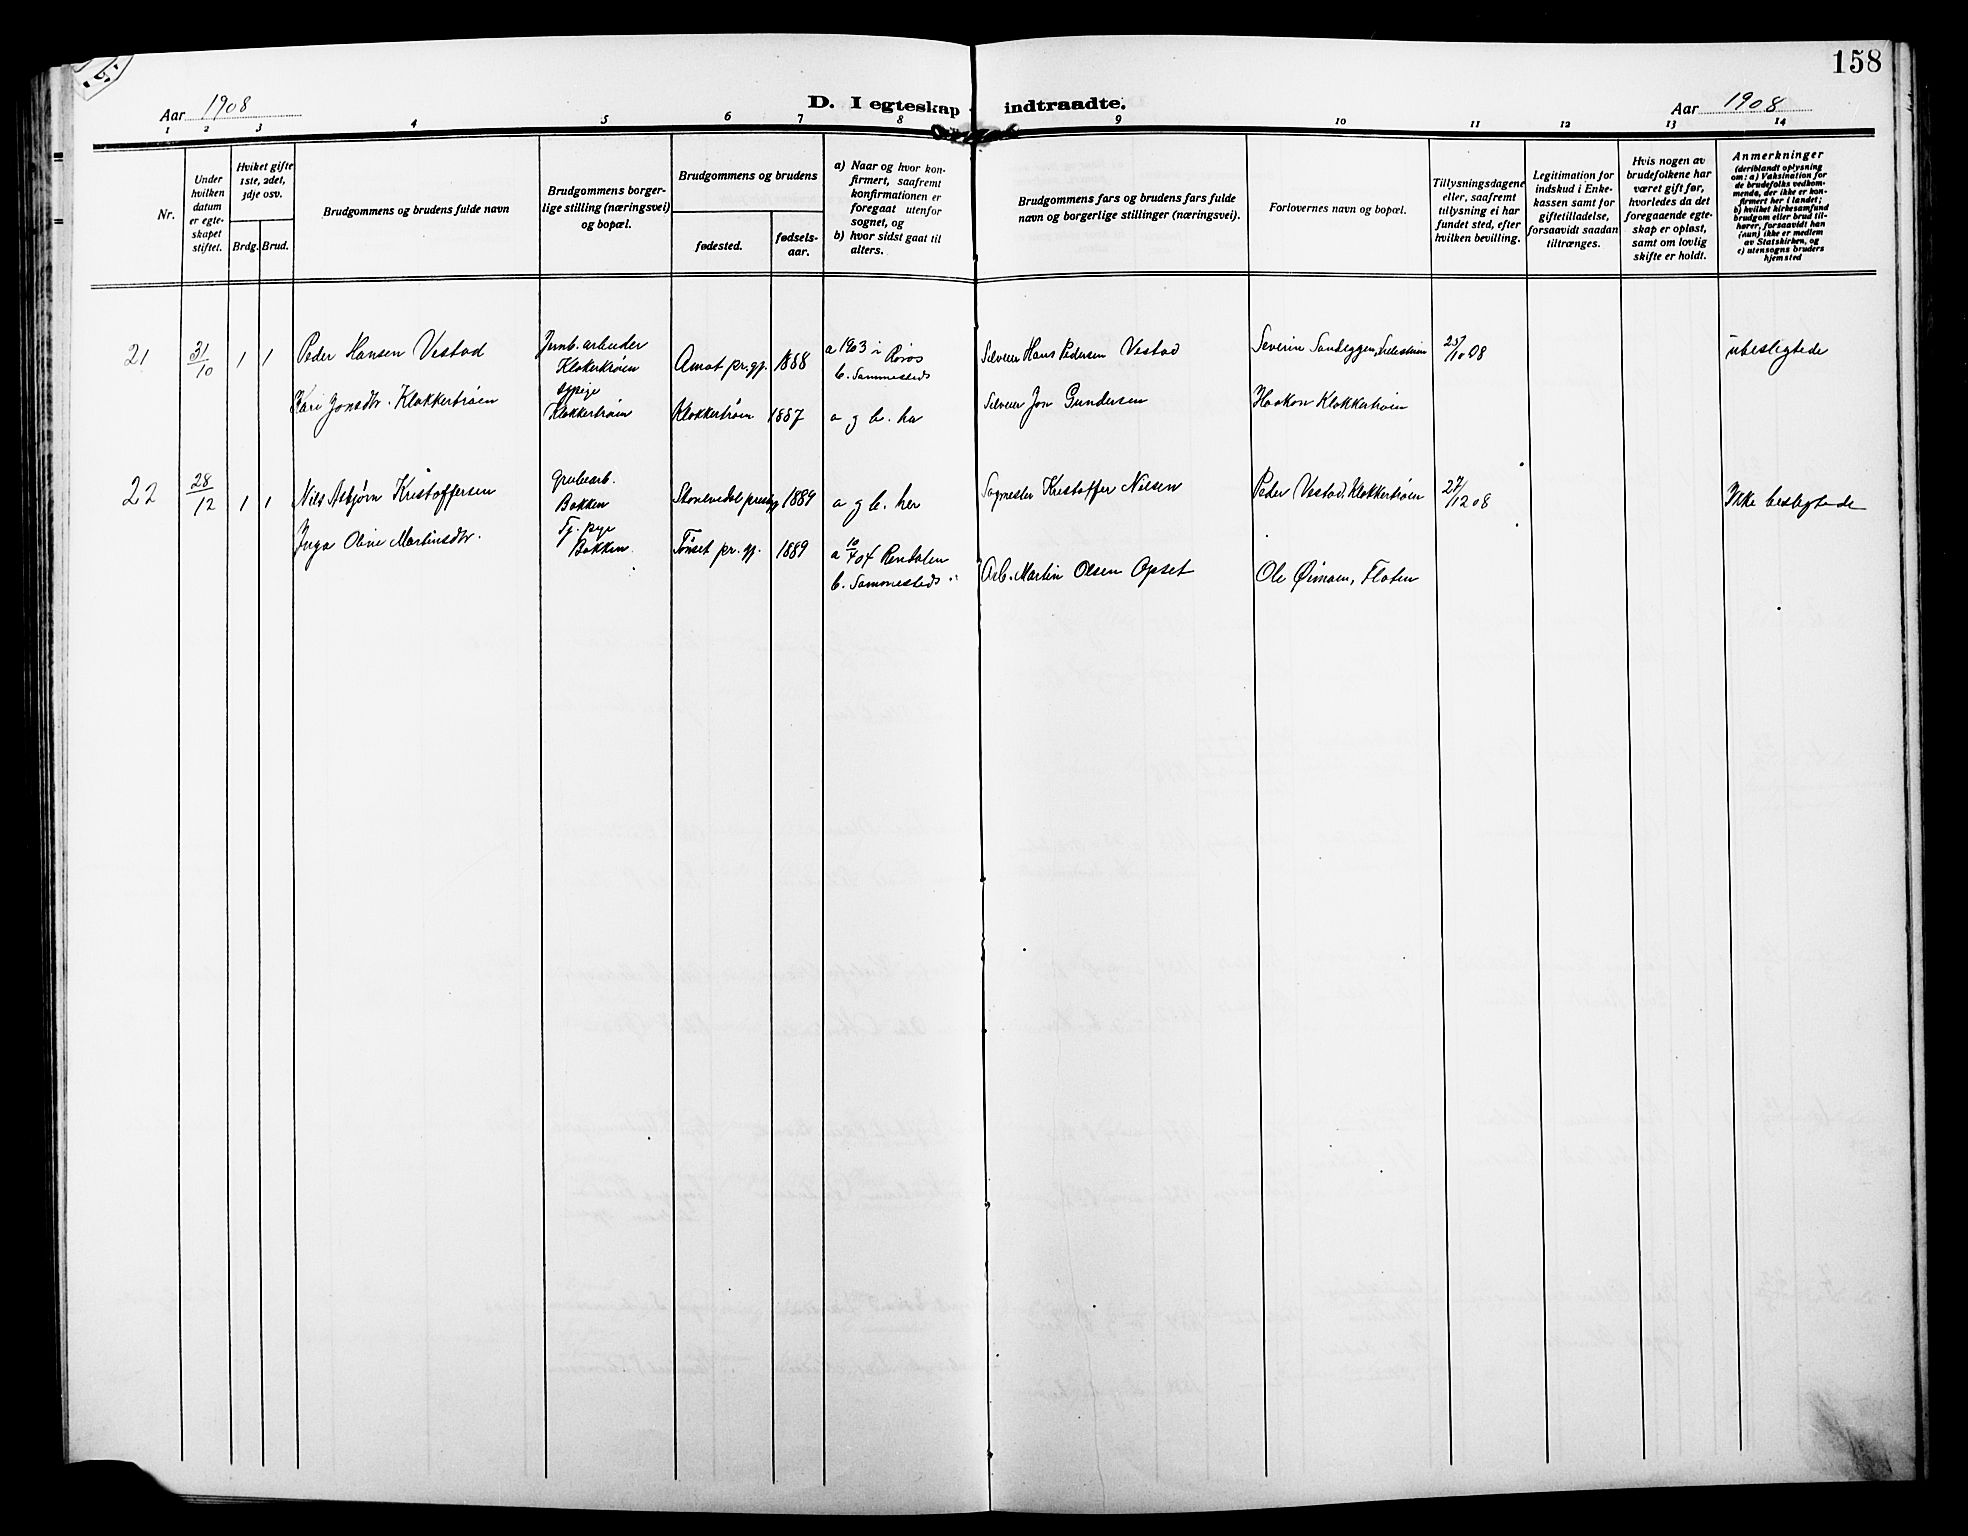 158
Aar 1908
D. I egteskap indtraadte.
Aar 1908
1 2 3 4 5 6 7 8 9 10 11 12 13 14
Nr.
Under hvilken datum er egteskapet stiftet.
Hviket gifte 1ste, 2det, 3dje osv.
Brdg. Brud.
Brudgommens og brudens fulde navn
Brudgommens borgerlige stilling (næringsvei) og bopæl.
Brudgommens og brudens
fødested.
fødselsaar.
a) Naar og hvor konfirmert, saafremt konfirmationen er foregaat utenfor sognet, og
b) hvor sidst gaat til alters.
Brudgommens fars og brudens fars fulde navn og borgerlige stillinger (næringsvei).
Forlovernes navn og bopæl.
Tillysningsdagene eller, saafremt tillysning ei har fundet sted, efter hvilken bevilling.
Legitimation for indskud i Enkekassen samt for giftetilladelse, forsaavidt saadan tiltrænges.
Hvis nogen av brudefolkene har været gift før, hvorledes da det foregaaende egteskap er opløst, samt om lovlig skifte er holdt.
Anmerkninger
(deriblandt oplysning om: a) Vaksination for de brudefolks vedkommende, der ikke er konfirmert her i landet;
b) hvilket kirkesamfund brudgom eller brud tilhører, forsaavidt han (hun) ikke er medlem av Statskirken, og
c) utensogns bruders hjemsted
21 31/10 1 1 Peder Hansen Vestad
Jernb. arbeider Klokkertrøen
Amot pr.gj. 1888
a 1903 i Røros
b. Sammesteds
Selveier Hans Pedersen Vestad
Severin Sandeggen,
25/10 08
ubeslegtede
Kari Jonsdtr. Klokkertrøen
sypige Klokkertrøen
Klokkertrøen 1887
a g b. her
Selveier Jon Gundersen
Haakon Klokkertrøen
22 28/12 1 1 Nils Asbjørn Kristoffersen
Grubearb. Bakken
1889
a g b. her
Sagmester Kristoffer Nilsen
Peder Vestad, Klokkertrøen
27/12 08
Ikke beslegtede
Inga Oline Martinsdtr.
Tj. pige Bakken.
Tønset pr. gj. 1889
a 10/4 04 Rendalen
b. Sammesteds
Arb. Martin Olsen Opset
Ole Øimoen, Floten